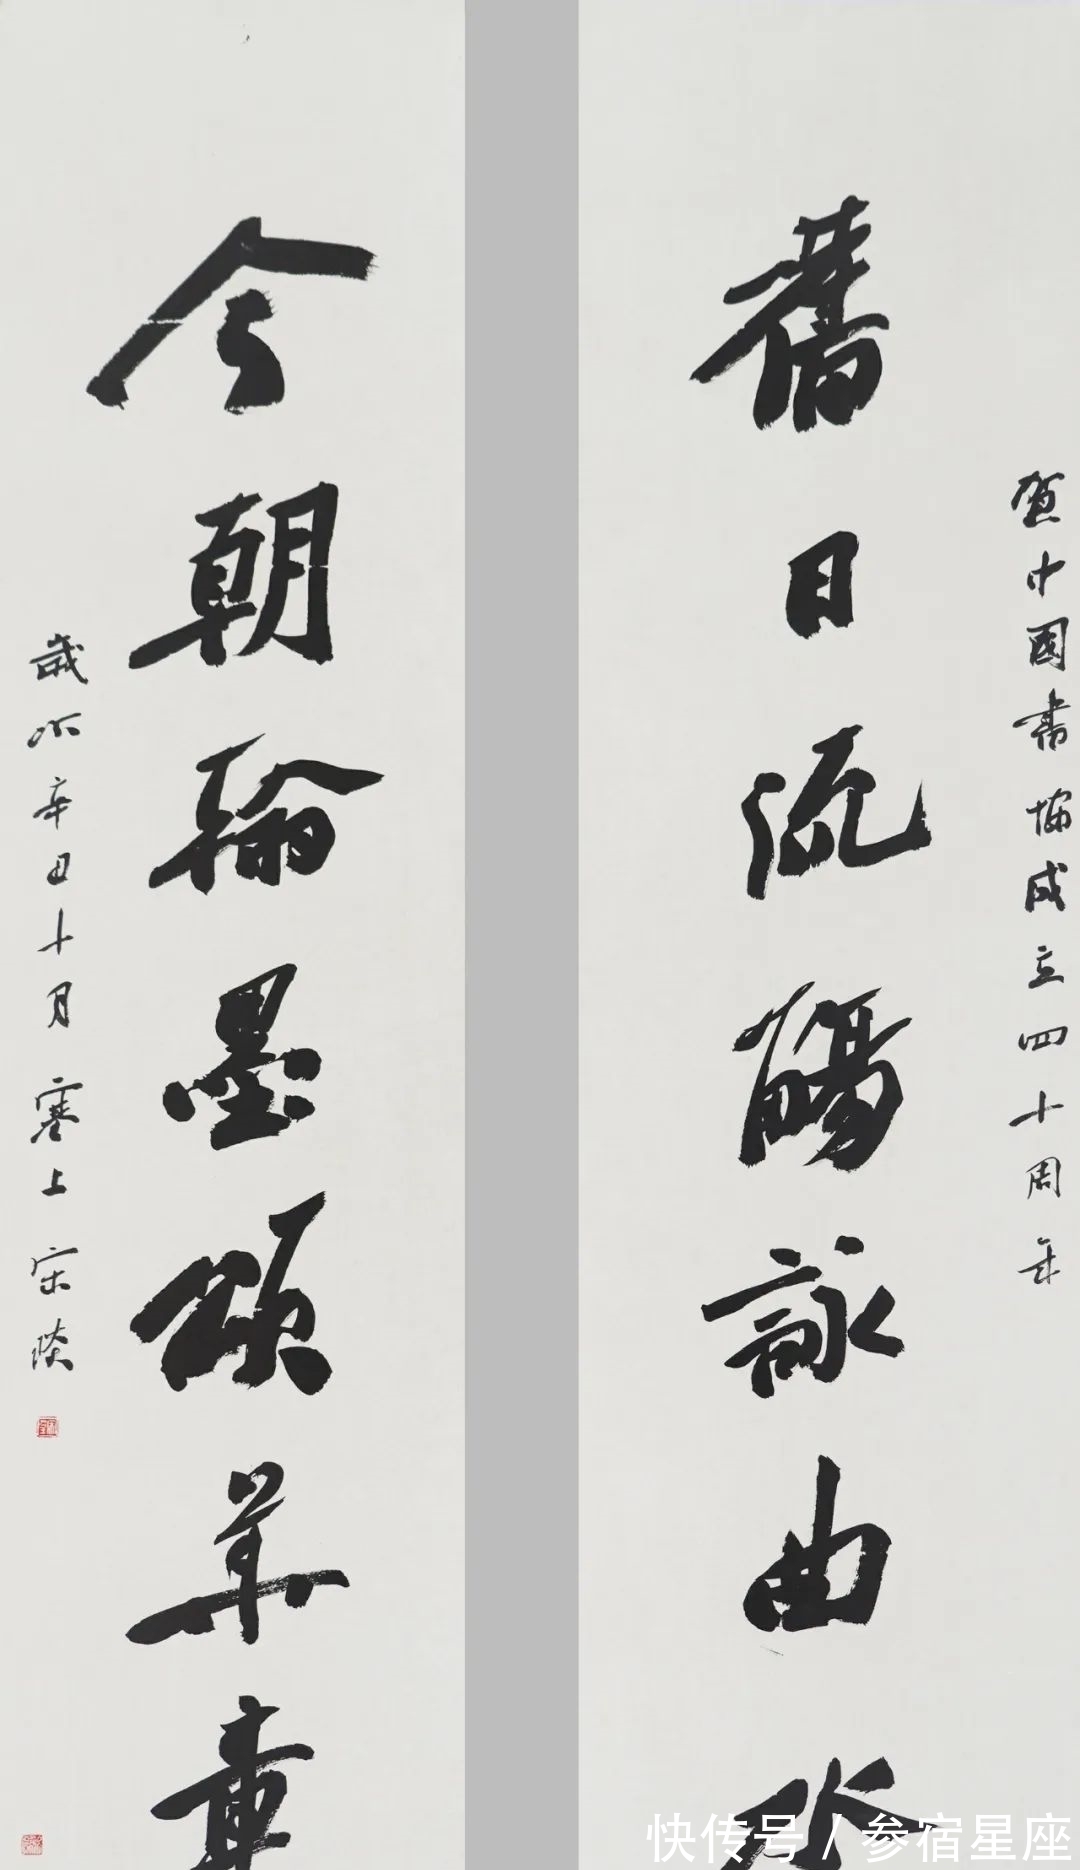 贺中國書協成立四十周年
舊日流觴詠曲水
今朝翰墨頌華章
歲次辛丑十月塞上宋琰
快传号 / 参宿星座